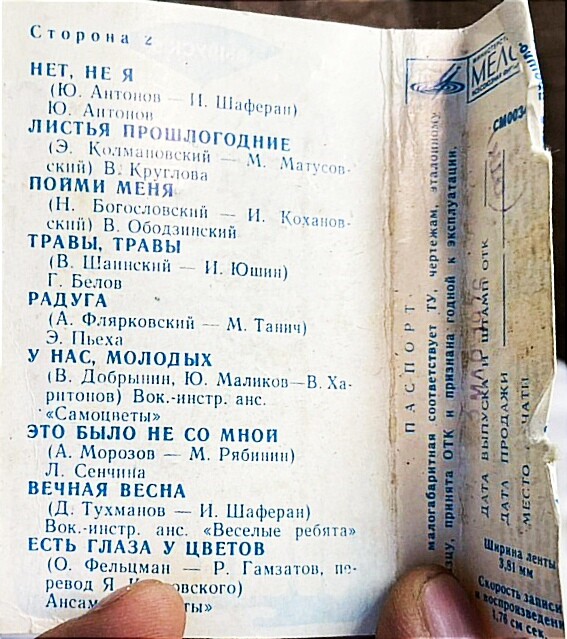 Сторона 2
НЕТ, НЕ Я
(Ю. Антонов — И. Шаферан)
Ю. Антонов
ЛИСТЬЯ ПРОШЛОГОДНИЕ
(Э. Колмановский — М. Матусов-
ский) В. Круглова
ПОЙМИ МЕНЯ
(Н. Богословский — И. Кохановский
ский) В. Ободзинский
ТРАВЫ, ТРАВЫ
(В. Шаинский — И. Юшин)
Г. Белов
РАДУГА
(А. Флярковский — М. Танич)
Э. Пьеха
У НАС, МОЛОДЫХ
(В. Добрынин, Ю. Маликов—В. Ха-
ритонов) Вок.-инстр. анс.
«Самоцветы»
ЭТО БЫЛО НЕ СО МНОЙ
(А. Морозов — М. Рябинин)
Л. Сенчина
ВЕЧНАЯ ВЕСНА
(Д. Тухманов — И. Шаферан)
Вок.-инстр. анс. «Веселые ребята»
ЕСТЬ ГЛАЗА У ЦВЕТОВ
(О. Фельцман — Р. Гамзатов, пе-
ревод Я.
ПАСПОРТ
малогабаритная соответствует ТУ, чертежам эталонному
принята ОТК и признана годной к эксплуатации.
ДАТА ВЫПУСКА ШТАМП ОТК
ДАТА ПРОДАЖИ
МЕСТО
Ширина ленты
3,81 мм
Скорость записи
и воспроизведени